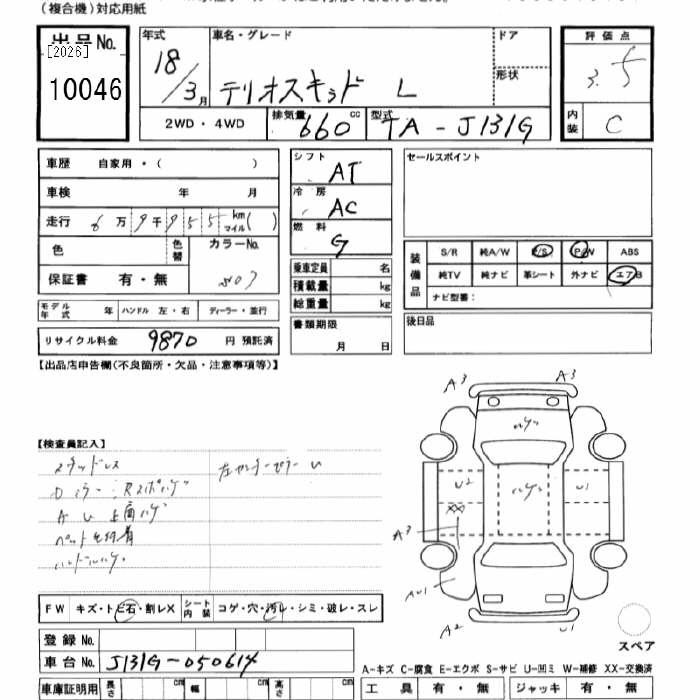 (複合機)対応用紙
出品No.
[2026]
10046
年式
18/3月
車名・グレード
テリオスキッド L
ドア
形状
評価点
3.5
内装
C
2WD・4WD
排気量
660 cc
型式
TA-J131G
車歴 自家用・( )
車検 年 月
走行 6万9千955 km マイル( )
色
色替
カラーNo.
S07
保証書 有・無
モデル年式 年 ハンドル 左・右 ディーラー・並行
リサイクル料金 9870 円 預託済
シフト
AT
冷房
AC
燃料
G
乗車定員 名
積載量 kg
総重量 kg
書類期限
月 日
セールスポイント
装備品
S/R 純A/W P/S P/W ABS
純TV 純ナビ 革シート 外ナビ エアB
ナビ型番:
後日品
【出品店申告欄(不良箇所・欠品・注意事項等)】
【検査員記入】
スタッドレス
左センターピラーU
Dミラー
ペット毛付着
ハンドルハゲ
A3
A3
ハゲ
U2
ハゲ
U1
XX
A3
AU1
A2
U1
スペア
FW キズ・ト ビ石・割レX シート内装 コゲ・穴・汚レ・シミ・破レ・スレ
登録No.
車台No. J131G-050614
車庫証明用 長さ cm 幅 cm 高さ cm
A-キズ C-腐食 E-エクボ S-サビ U-凹ミ W-補修 XX-交換済
工具 有・無 ジャッキ 有・無